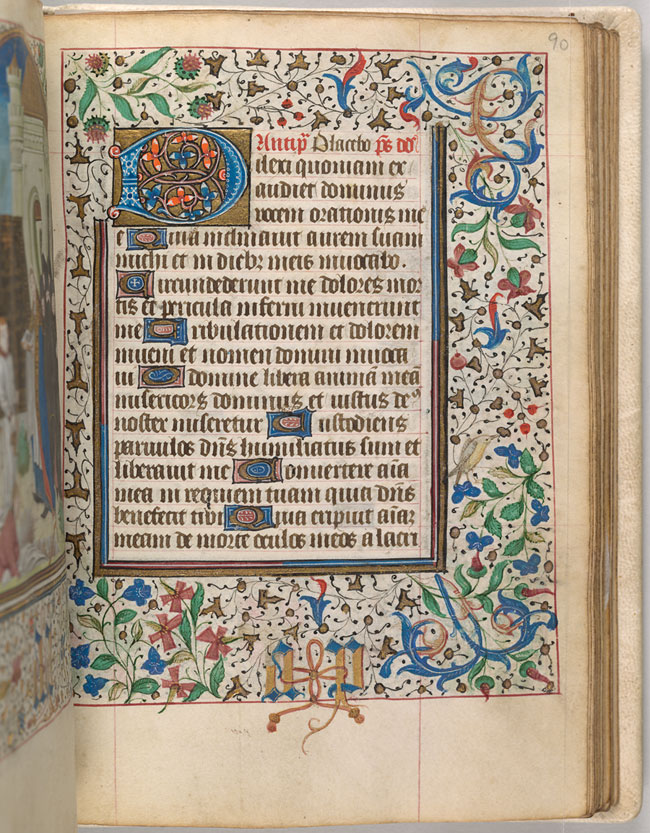 90
Antip̃ Placebo p̃s dd
Dilexi quoniam ex
audiet dominus
vocem orationis me
e Quia inclinauit aurem suam
michi et in diebz meis inuocabo.
Circundederunt me dolores mor
tis et pericula inferni inuenerunt
me Tribulationem et dolorem
inueni et nomen domini inuoca
ui O domine libera animã meã
misericors dominus et iustus deꝰ
noster miseretur Custodiens
paruulos dñs humiliatus sum et
liberauit me Conuertere aĩa
mea in requiem tuam quia dñs
benefecit tibi Quia eripuit aĩaz
meam de morte oculos meos a lacri